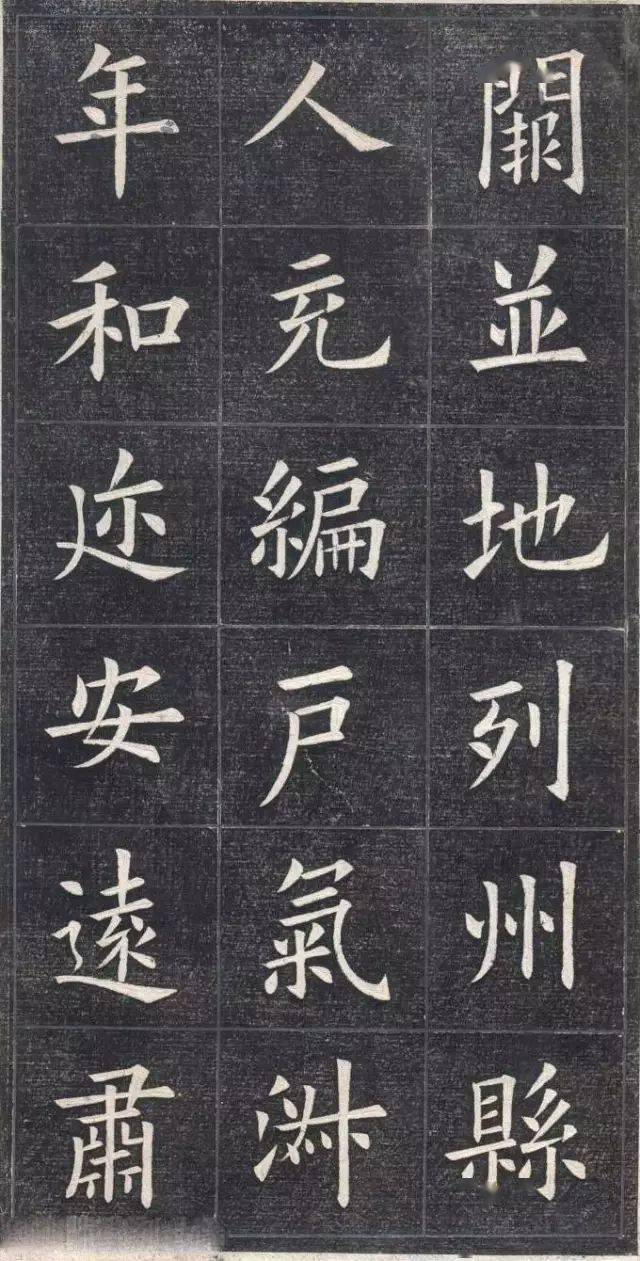 闕並地列州縣
人充編戸氣淑
年和迩安遠肅